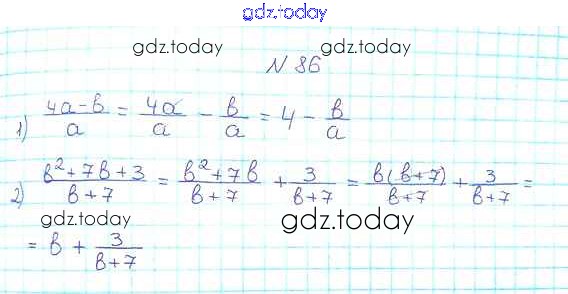 gdz.today
gdz.today gdz.today
N 86
1) (4a-b)/a = 4a/a - b/a = 4 - b/a
2) (b²+7b+3)/(b+7) = (b²+7b)/(b+7) + 3/(b+7) = b(b+7)/(b+7) + 3/(b+7) =
gdz.today gdz.today
= b + 3/(b+7)